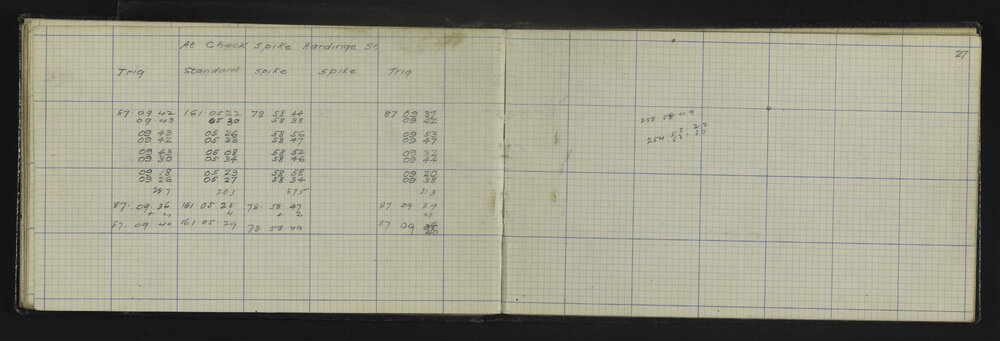 At Check Spike Hardinge St
27
Trig Standard Spike Spike Trig
87 · 09 42 161 05 22 78 58 44 87 09 37
09 43 05 30 58 38 09 42
09 43 05 26 58 56 09 53
09 42 05 33 58 47 09 47
09 43 05 08 58 52 09 32
09 30 05 34 58 46 09 44
09 18 05 23 58 58 09 20
09 26 05 27 58 34 09 38
203 375 313
87 · 09 36 161 05 25 78 · 58 47 87 · 09 39
+ 4 4 + 2
87 · 09 40 161 05 · 29 78 58 49 87 09 40
258 08 49
254 53 · 23
53 · 30